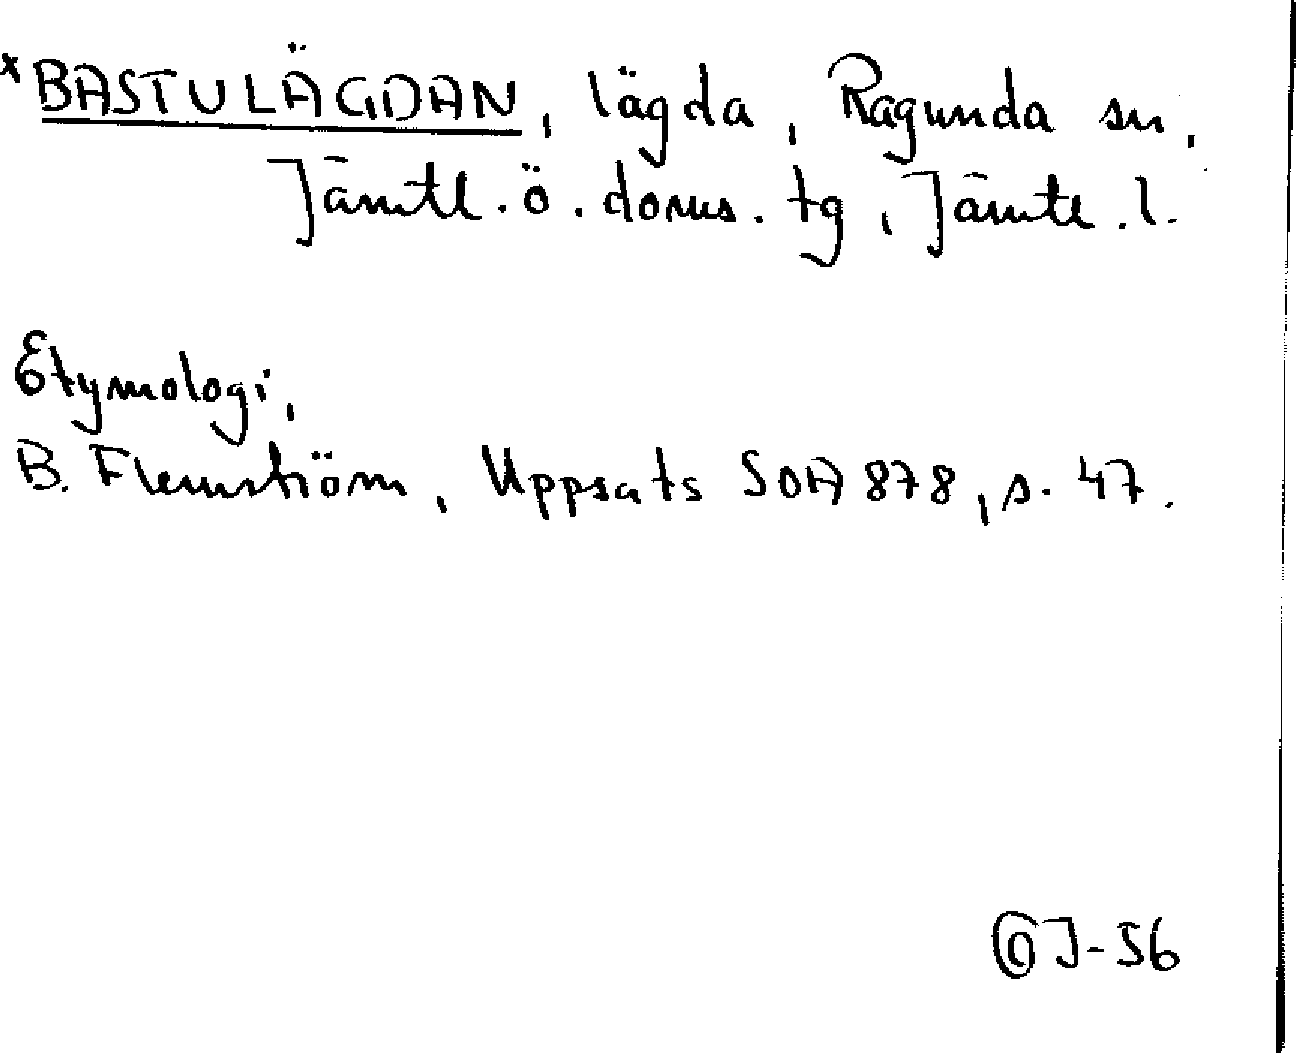 *BASTULÄGDAN, lägda, Ragunda sn,
Jämtl. ö. doms. tg, Jämtl. l.
Etymologi,
B. Flemström, Uppsats SOA 878, s. 47.
J-56